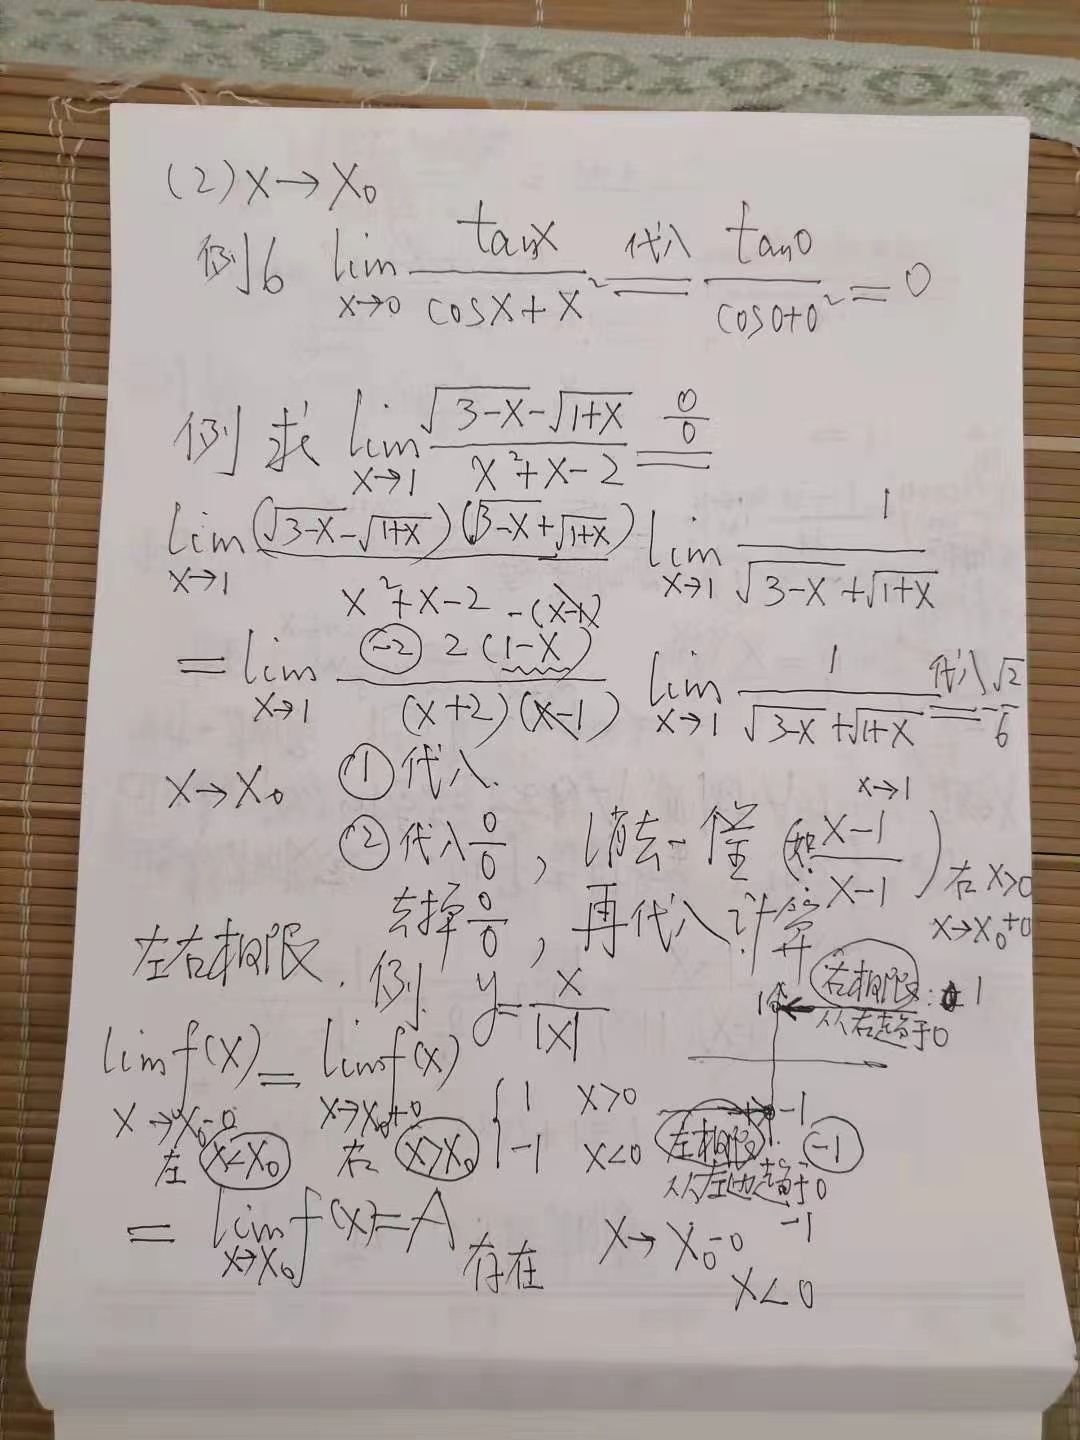 (2) x→x₀
例6 lim x→0 tanx/(cosx+x²) 代入= tan0/(cos0+0²) = 0
例 求 lim x→1 (√(3-x)-√(1+x))/(x²+x-2) 0/0=
lim x→1 (√(3-x)-√(1+x))(√(3-x)+√(1+x))/(x²+x-2) lim x→1 1/(√(3-x)+√(1+x))
-(x-1)
= lim x→1 -2 2(1-x)/((x+2)(x-1)) lim x→1 1/(√(3-x)+√(1+x)) 代入= -√2/6
x→x₀ ①代入.
x→1
②代入0/0, 消去一 (如 (x-1)/(x-1))
去掉0/0, 再代入计算
右 x>0
x→x₀+0
左右极限. 例. y=x/|x|
1 右极限: 1
从右趋于0
lim x→x₀-0 f(x) = lim x→x₀+0 f(x)
{1 x>0
-1 x<0
-1
左 x<x₀ 右 x>x₀
左极限: -1
从左边趋于0
-1
= lim x→x₀ f(x)=A 存在
x→x₀-0
x<0